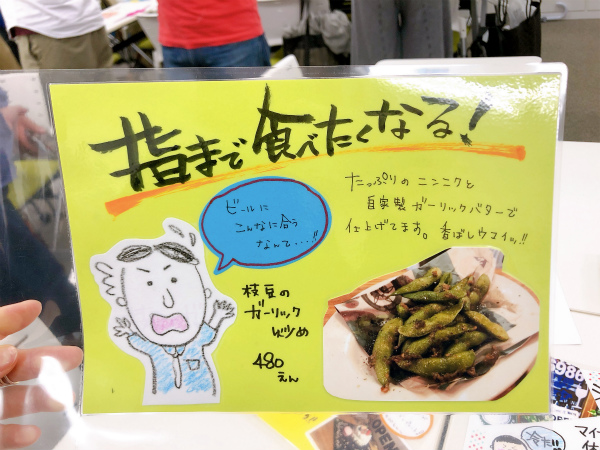 指まで食べたくなる!
たっぷりのニンニクと
自家製ガーリックバターで
仕上げてます。香ばしウマイッ!!
ビールに
こんなに合う
なんて・・・!!
枝豆の
ガーリック
炒め
480
えん
986
OPEN
冷だ
マイ
仕